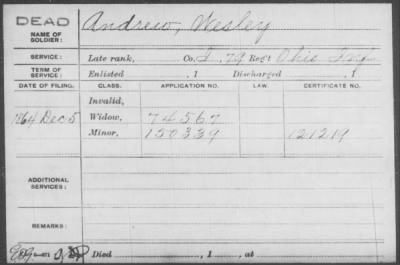 DEAD
NAME OF SOLDIER: Andrew, Wesley
SERVICE: Late rank, Co. I, 79 Reg't Ohio Inf
TERM OF SERVICE: Enlisted , 1 Discharged , 1
DATE OF FILING. CLASS. APPLICATION NO. LAW. CERTIFICATE NO.
Invalid,
1864 Dec 5 Widow, 74567
Minor, 150339 121219
ADDITIONAL SERVICES:
REMARKS:
Died , 1 , at